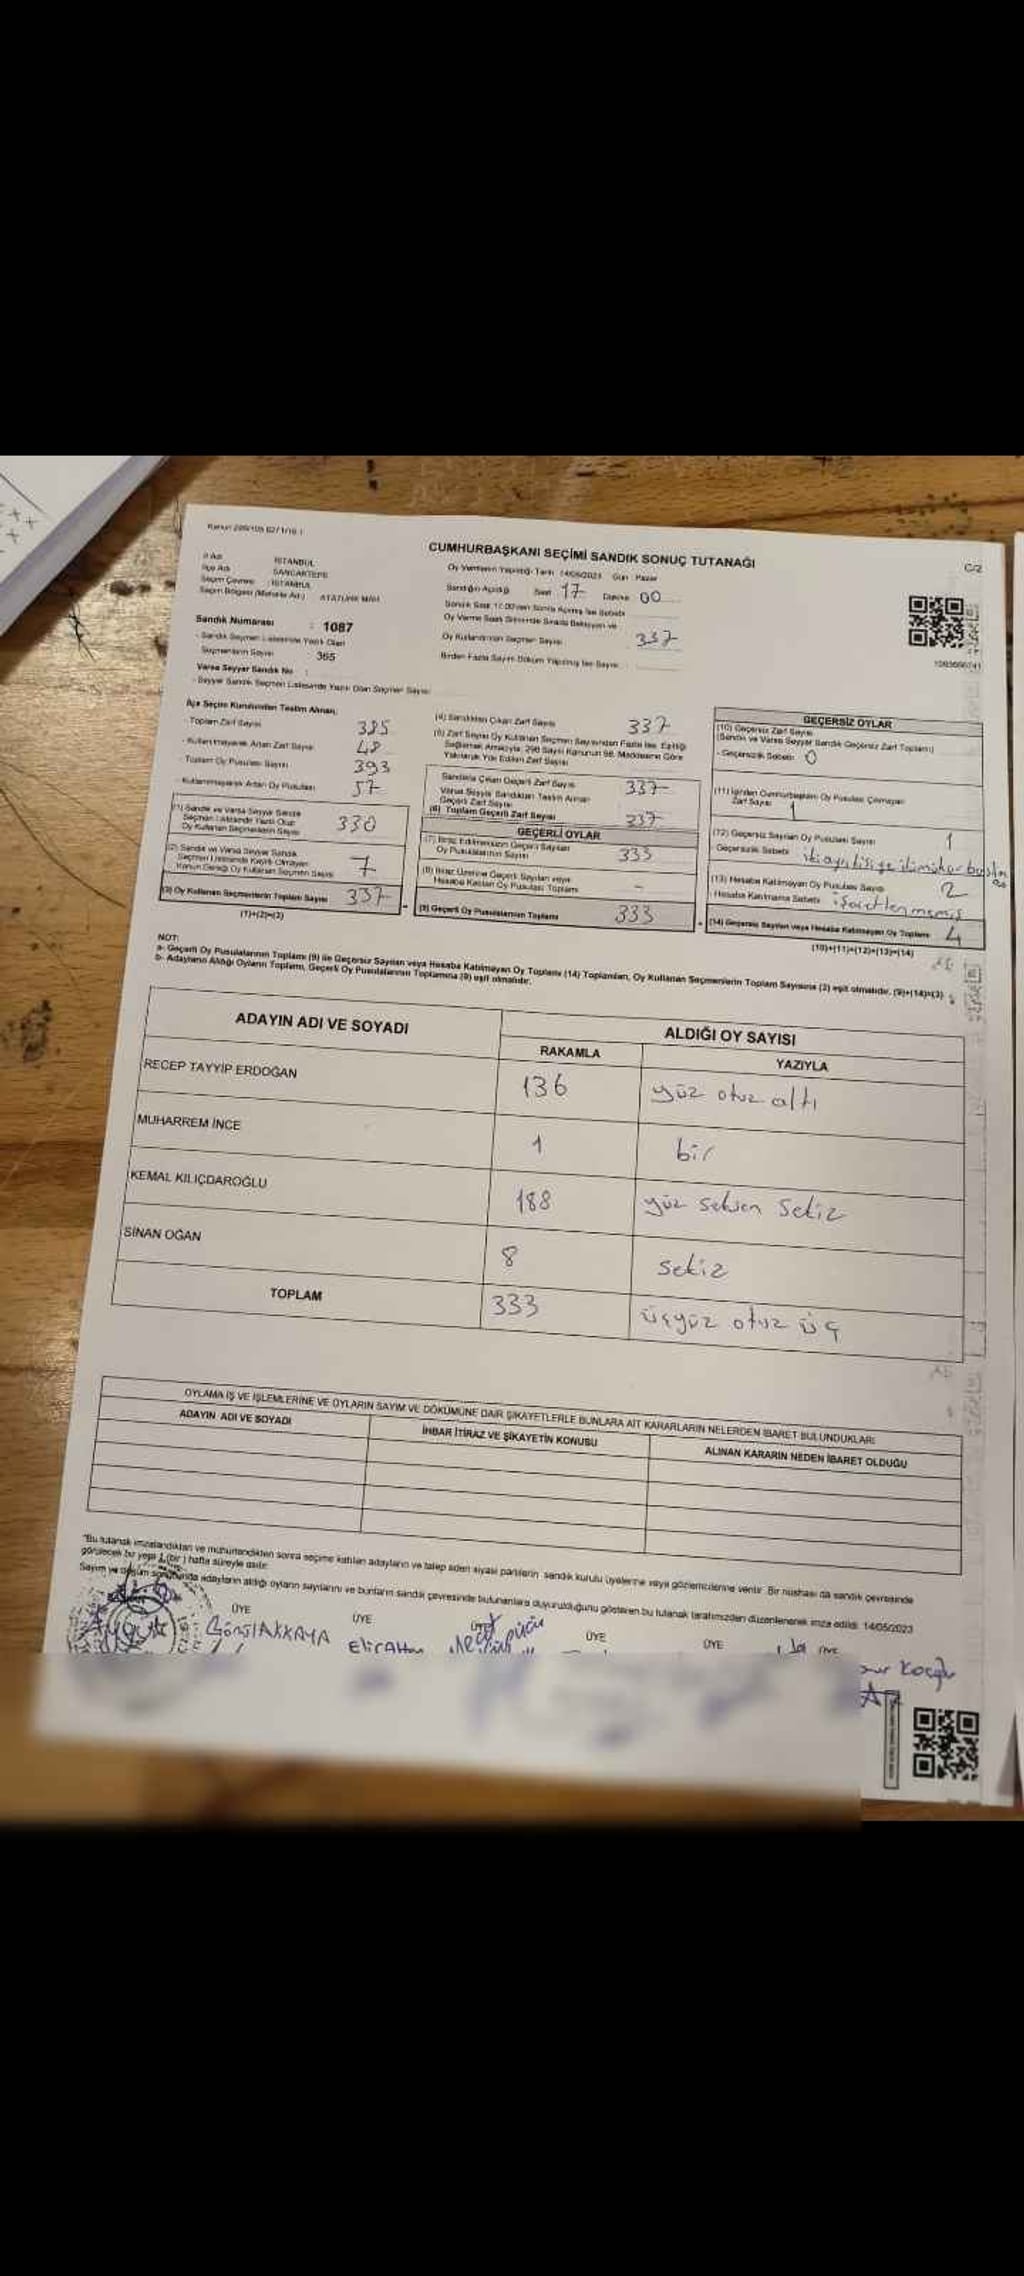 CUMHURBAŞKANI SEÇİMİ SANDIK SONUÇ TUTANAĞI
C/2
İl Adı : İSTANBUL
İlçe Adı SANCAKTEPE
Seçim Çevresi : İSTANBUL
Seçim Bölgesi (Mahalle Adı) : ATATÜRK MAH.
Oy Vermenin Yapıldığı Tarih 14/05/2023 Gün : Pazar
Sandığın Açıldığı Saat 17 Dakika 00
Oy Kullandırılan Seçmen Sayısı 337
Birden Fazla Sayım Döküm Yapılmış İse Sayısı :
Sandık Numarası : 1087
- Sandık Seçmen Listesinde Yazılı Olan
Seçmenlerin Sayısı : 365
Varsa Seyyar Sandık No :
- Seyyar Sandık Seçmen Listesinde Yazılı Olan Seçmen Sayısı
İlçe Seçim Kurulundan Teslim Alınan;
- Toplam Zarf Sayısı 385
- Kullanılmayarak Artan Zarf Sayısı 48
- Toplam Oy Pusulası Sayısı 393
- Kullanılmayarak Artan Oy Pusulası 57
(1) Sandık ve Varsa Seyyar Sandık
Seçmen Listesinde Yazılı Olup
Oy Kullanan Seçmenlerin Sayısı 330
(2) Sandık ve Varsa Seyyar Sandık
Seçmen Listesinde Kayıtlı Olmayan
Kanun Gereği Oy Kullanan Seçmen Sayısı 7
(3) Oy Kullanan Seçmenlerin Toplam Sayısı 337
(1)+(2)=(3)
(4) Sandıktan Çıkan Zarf Sayısı 337
(5) Zarf Sayısı Oy Kullanan Seçmen Sayısından Fazla İse, Eşitliği
Sağlamak Amacıyla, 298 Sayılı Kanunun 98. Maddesine Göre
Yakılarak Yok Edilen Zarf Sayısı
Sandıkta Çıkan Geçerli Zarf Sayısı 337
Varsa Seyyar Sandıktan Teslim Alınan
Geçerli Zarf Sayısı
(6) Toplam Geçerli Zarf Sayısı 337
GEÇERLİ OYLAR
(7) İtiraz Edilmeksizin Geçerli Sayılan
Oy Pusulalarının Sayısı 333
(8) İtiraz Üzerine Geçerli Sayılan veya
Hesaba Katılan Oy Pusulası Toplamı -
(9) Geçerli Oy Pusulalarının Toplamı 333
GEÇERSİZ OYLAR
(10) Geçersiz Zarf Sayısı
(Sandık ve Varsa Seyyar Sandık Geçersiz Zarf Toplamı)
- Geçersizlik Sebebi 0
(11) İçinden Cumhurbaşkanı Oy Pusulası Çıkmayan
Zarf Sayısı 1
(12) Geçersiz Sayılan Oy Pusulası Sayısı 1
Geçersizlik Sebebi
(13) Hesaba Katılmayan Oy Pusulası Sayısı 2
Hesaba Katılmama Sebebi : işaretlenmemiş
(14) Geçersiz Sayılan veya Hesaba Katılmayan Oy Toplamı 4
(10)+(11)+(12)+(13)=(14)
NOT:
a- Geçerli Oy Pusulalarının Toplamı (9) ile Geçersiz Sayılan veya Hesaba Katılmayan Oy Toplamı (14) Toplamları, Oy Kullanan Seçmenlerin Toplam Sayısına (3) eşit olmalıdır. (9)+(14)=(3)
b- Adayların Aldığı Oyların Toplamı, Geçerli Oy Pusulalarının Toplamına (9) eşit olmalıdır.
ADAYIN ADI VE SOYADI
ALDIĞI OY SAYISI
RAKAMLA
YAZIYLA
RECEP TAYYİP ERDOĞAN 136 yüz otuz altı
MUHARREM İNCE 1 bir
KEMAL KILIÇDAROĞLU 188 yüz seksen sekiz
SİNAN OĞAN 8 sekiz
TOPLAM 333 üçyüz otuz üç
OYLAMA İŞ VE İŞLEMLERİNE VE OYLARIN SAYIM VE DÖKÜMÜNE DAİR ŞİKAYETLERLE BUNLARA AİT KARARLARIN NELERDEN İBARET BULUNDUKLARI
ADAYIN ADI VE SOYADI
İHBAR İTİRAZ VE ŞİKAYETİN KONUSU
ALINAN KARARIN NEDEN İBARET OLDUĞU
"Bu tutanak imzalandıktan ve mühürlendikten sonra seçime katılan adayların ve talep eden siyasi partilerin sandık kurulu üyelerine veya gözlemcilerine verilir. Bir nüshası da sandık çevresinde
görülecek bir yere 1 (bir) hafta süreyle asılır.
Sayım ve döküm sonucunda adayların aldığı oyların sayılarını ve bunların sandık çevresinde bulunanlara duyurulduğunu gösteren bu tutanak tarafımızdan düzenlenerek imza edildi. 14/05/2023
ÜYE
ÜYE
ÜYE
ÜYE
ÜYE
ÜYE